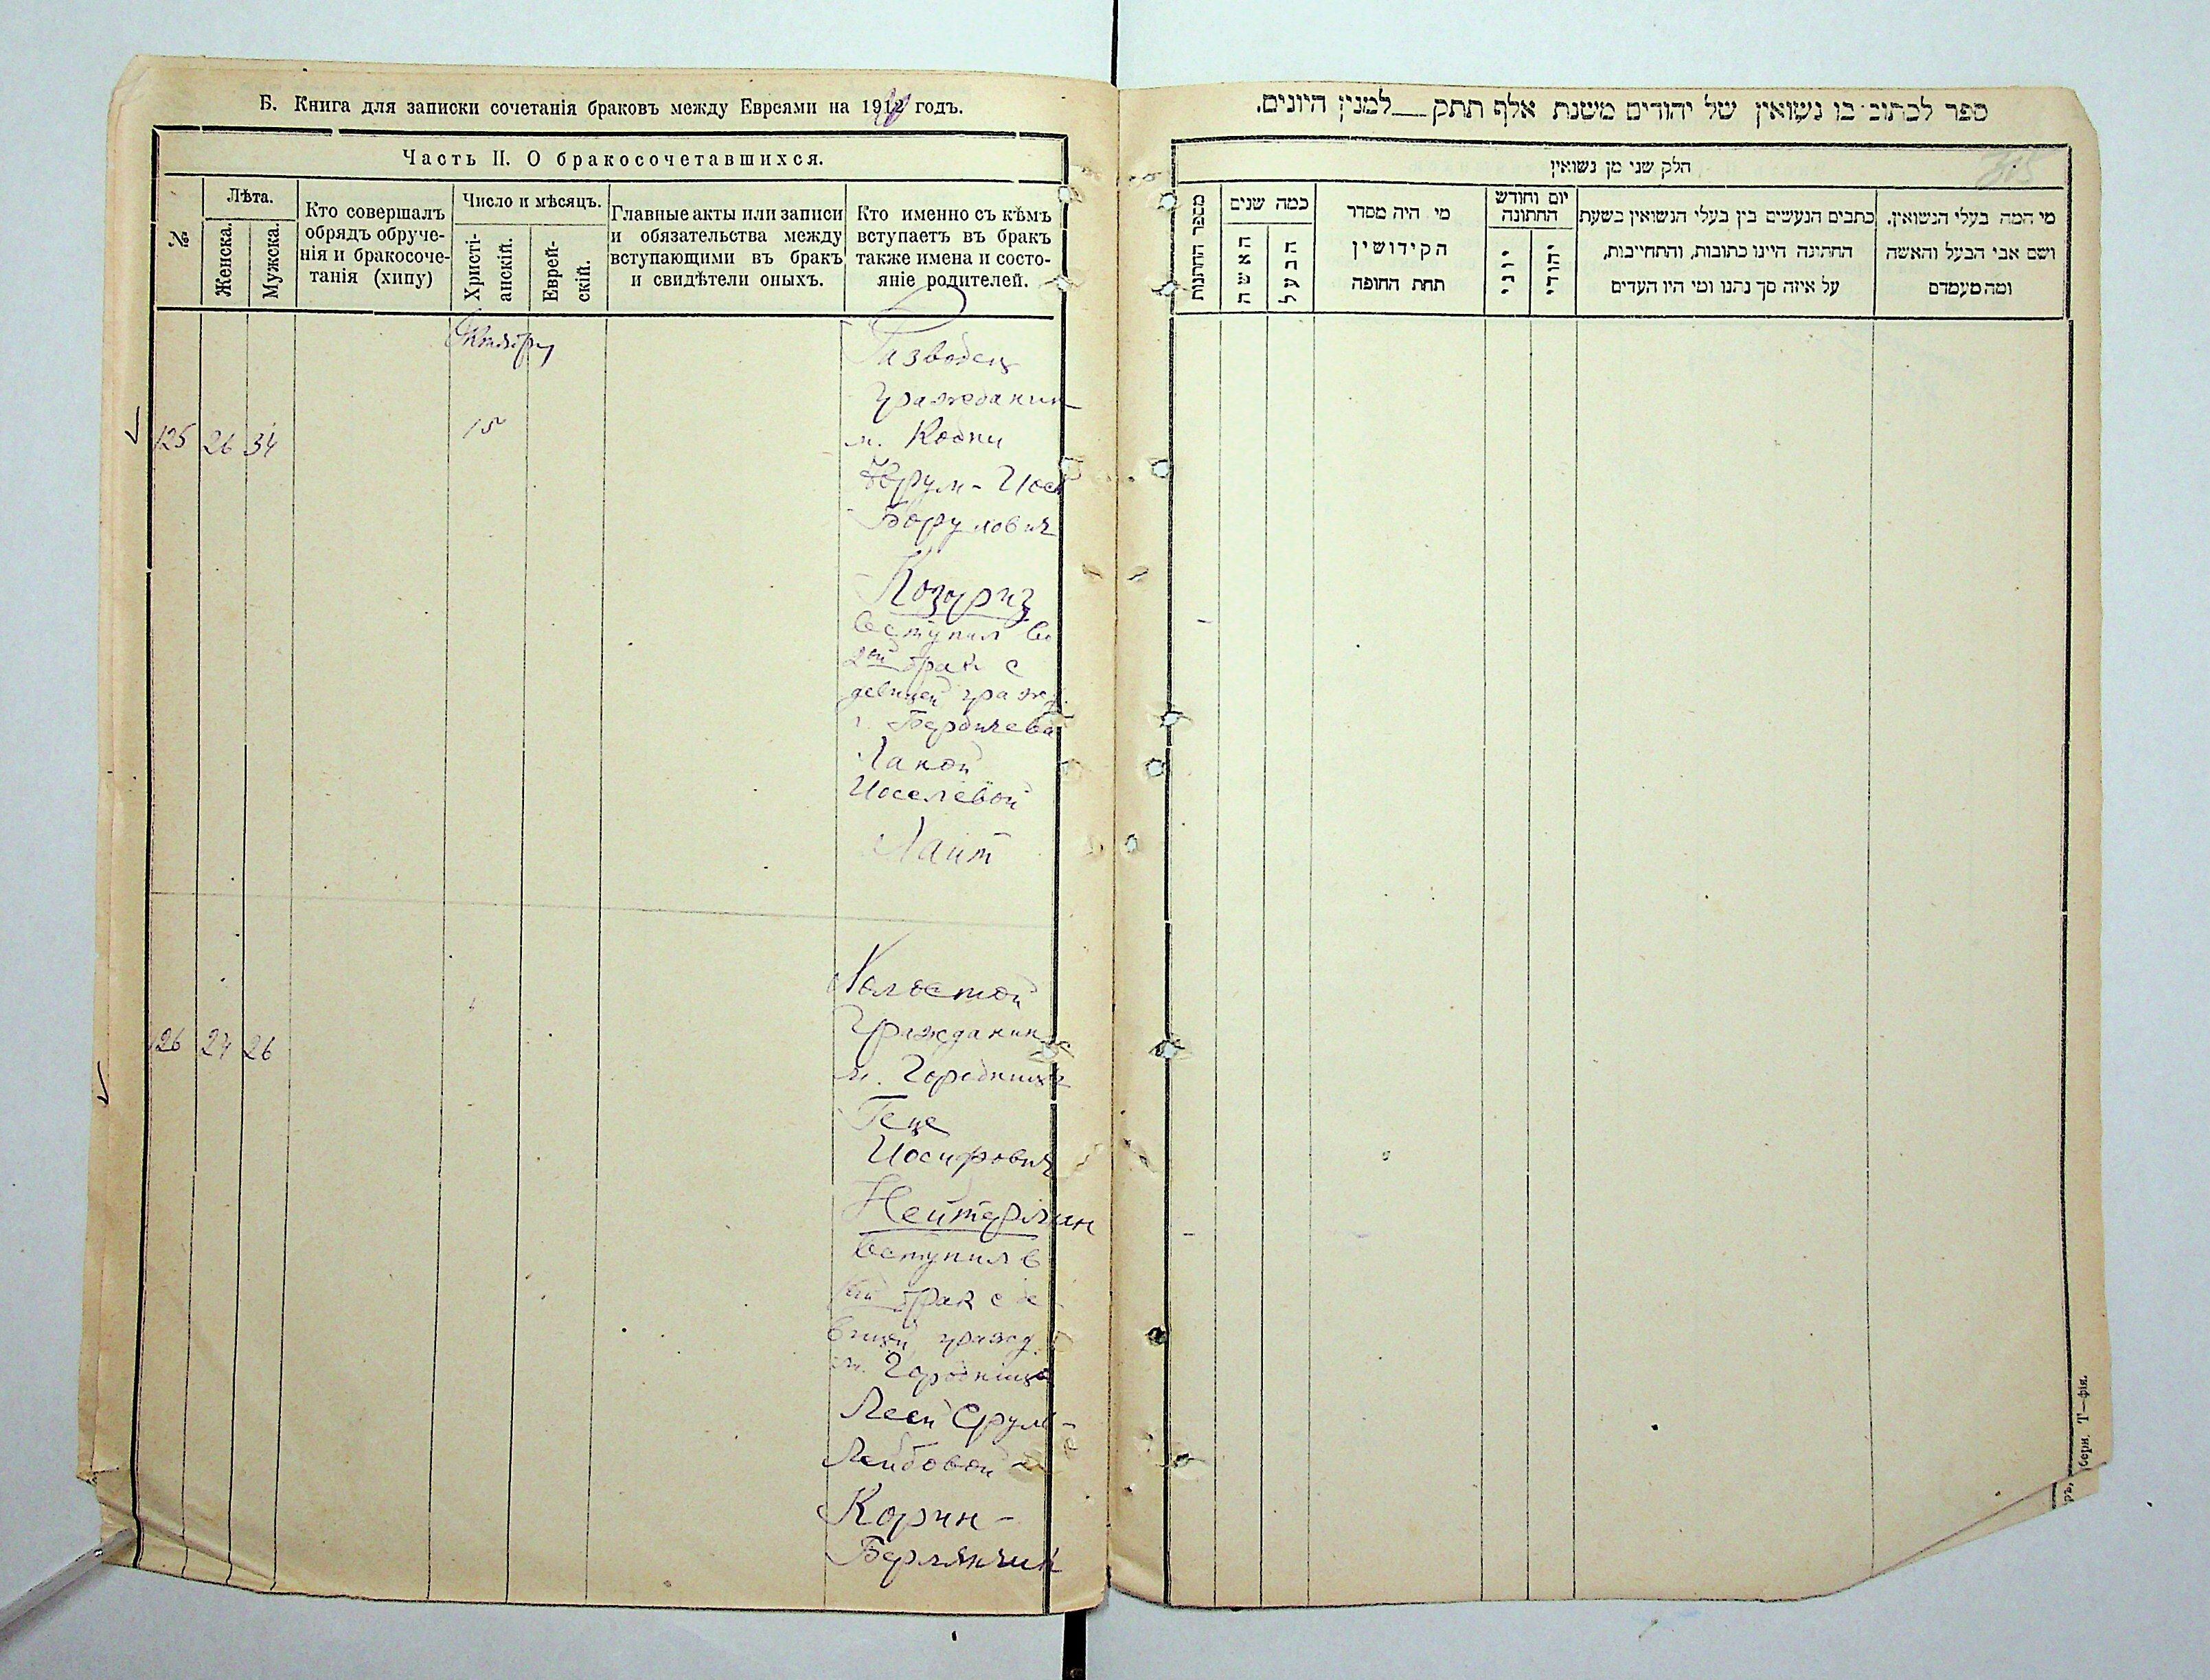 Б. Книга для записки сочетанія браковъ между Евреями на 19 годъ.
Часть II. О бракосочетавшихся.
№
Лѣта.
Женска.
Мужска.
Кто совершалъ
обрядъ обруче-
нія и бракосоче-
танія (хипу)
Число и мѣсяцъ.
Христі-
анскій.
Еврей-
скій.
Главные акты или записи
и обязательства между
вступающими въ бракъ
и свидѣтели оныхъ.
Кто именно съ кѣмъ
вступаетъ въ бракъ
также имена и состо-
яніе родителей.
Октября
125 26 34 15
Разводец
Гражданин
м. Кодни
Аврум-Иось
Борухович
вступил во
2ой брак с
девицей гражд.
г. Бердичева
Ханой
Иоселевой
Лаит
126 24 26
Холостой
Гражданин
м. Городница
Геце
Иосифович
Нейтерман
вступил в
брак с де
вицей гражд.
м. Городница
Леей Срул-
Лейбовой
Корин-
Берлянчик
ספר לכתוב בו נשואין של יהודים משנת אלף תתק למנין היונים.
חלק שני מן נשואין
מספר החתנות
כמה שנים
האשה
הבעל
מי היה מסדר
הקידושין
תחת החופה
יום וחודש
החתונה
יוני
יהודי
כתבים הנעשים בין בעלי הנשואין בשעת
החתונה היינו כתובות, והתחייבות,
על איזה סך נתנו ומי היו העדים
מי המה בעלי הנשואין,
ושם אבי הבעל והאשה
ומה מעמדם